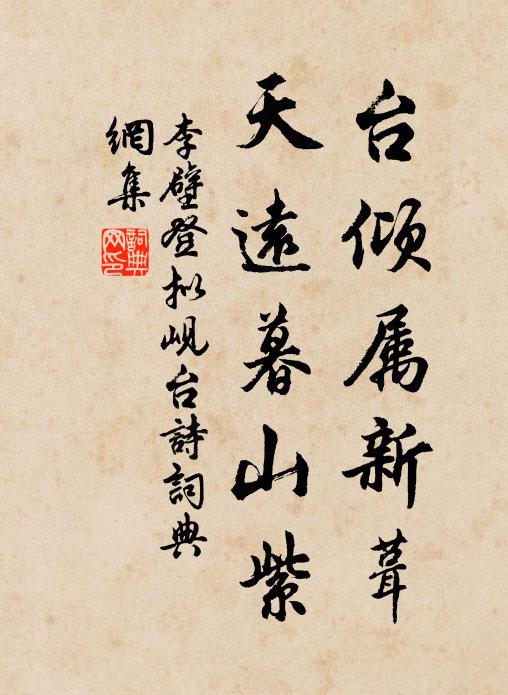 台倾属新葺
天遠暮山紫
李壁登拟岘台詩詞典
網集
詞典
网印